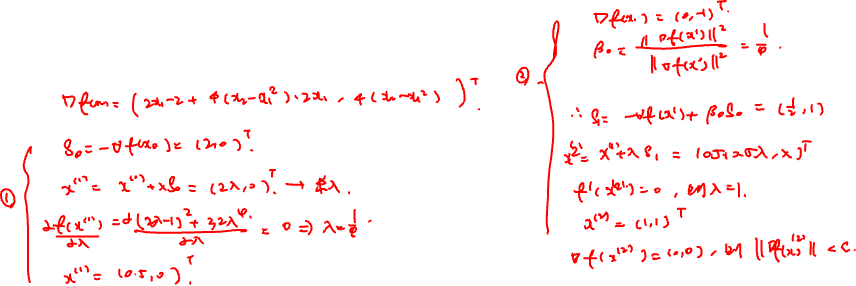 ∇f(x) = (2x₁-2+4(x₂-x₁²)·2x₁, 4(x₂-x₁²))ᵀ.
①
S₀ = -∇f(x₀) = (2,0)ᵀ.
x⁽¹⁾ = x⁽⁰⁾+λS₀ = (2λ,0)ᵀ. → λ.
df(x⁽¹⁾)/dλ = d(2λ-1)²+32λ⁴/dλ = 0 ⇒ λ=
x⁽¹⁾ = (0.5,0)ᵀ.
②
∇f(x₁) = (0,-1)ᵀ.
β₀ = ||∇f(x¹)||²/||∇f(x⁰)||² =
∴ S₁ = -∇f(x¹)+β₀S₀ = (½,1)
x⁽²⁾ = x⁽¹⁾+λS₁ = (0.5+0.5λ,λ)ᵀ
f'(x⁽²⁾)=0, λ=1.
x⁽²⁾ = (1,1)ᵀ
∇f(x⁽²⁾)=(0,0), ||∇f(x)⁽²⁾|| < ε.